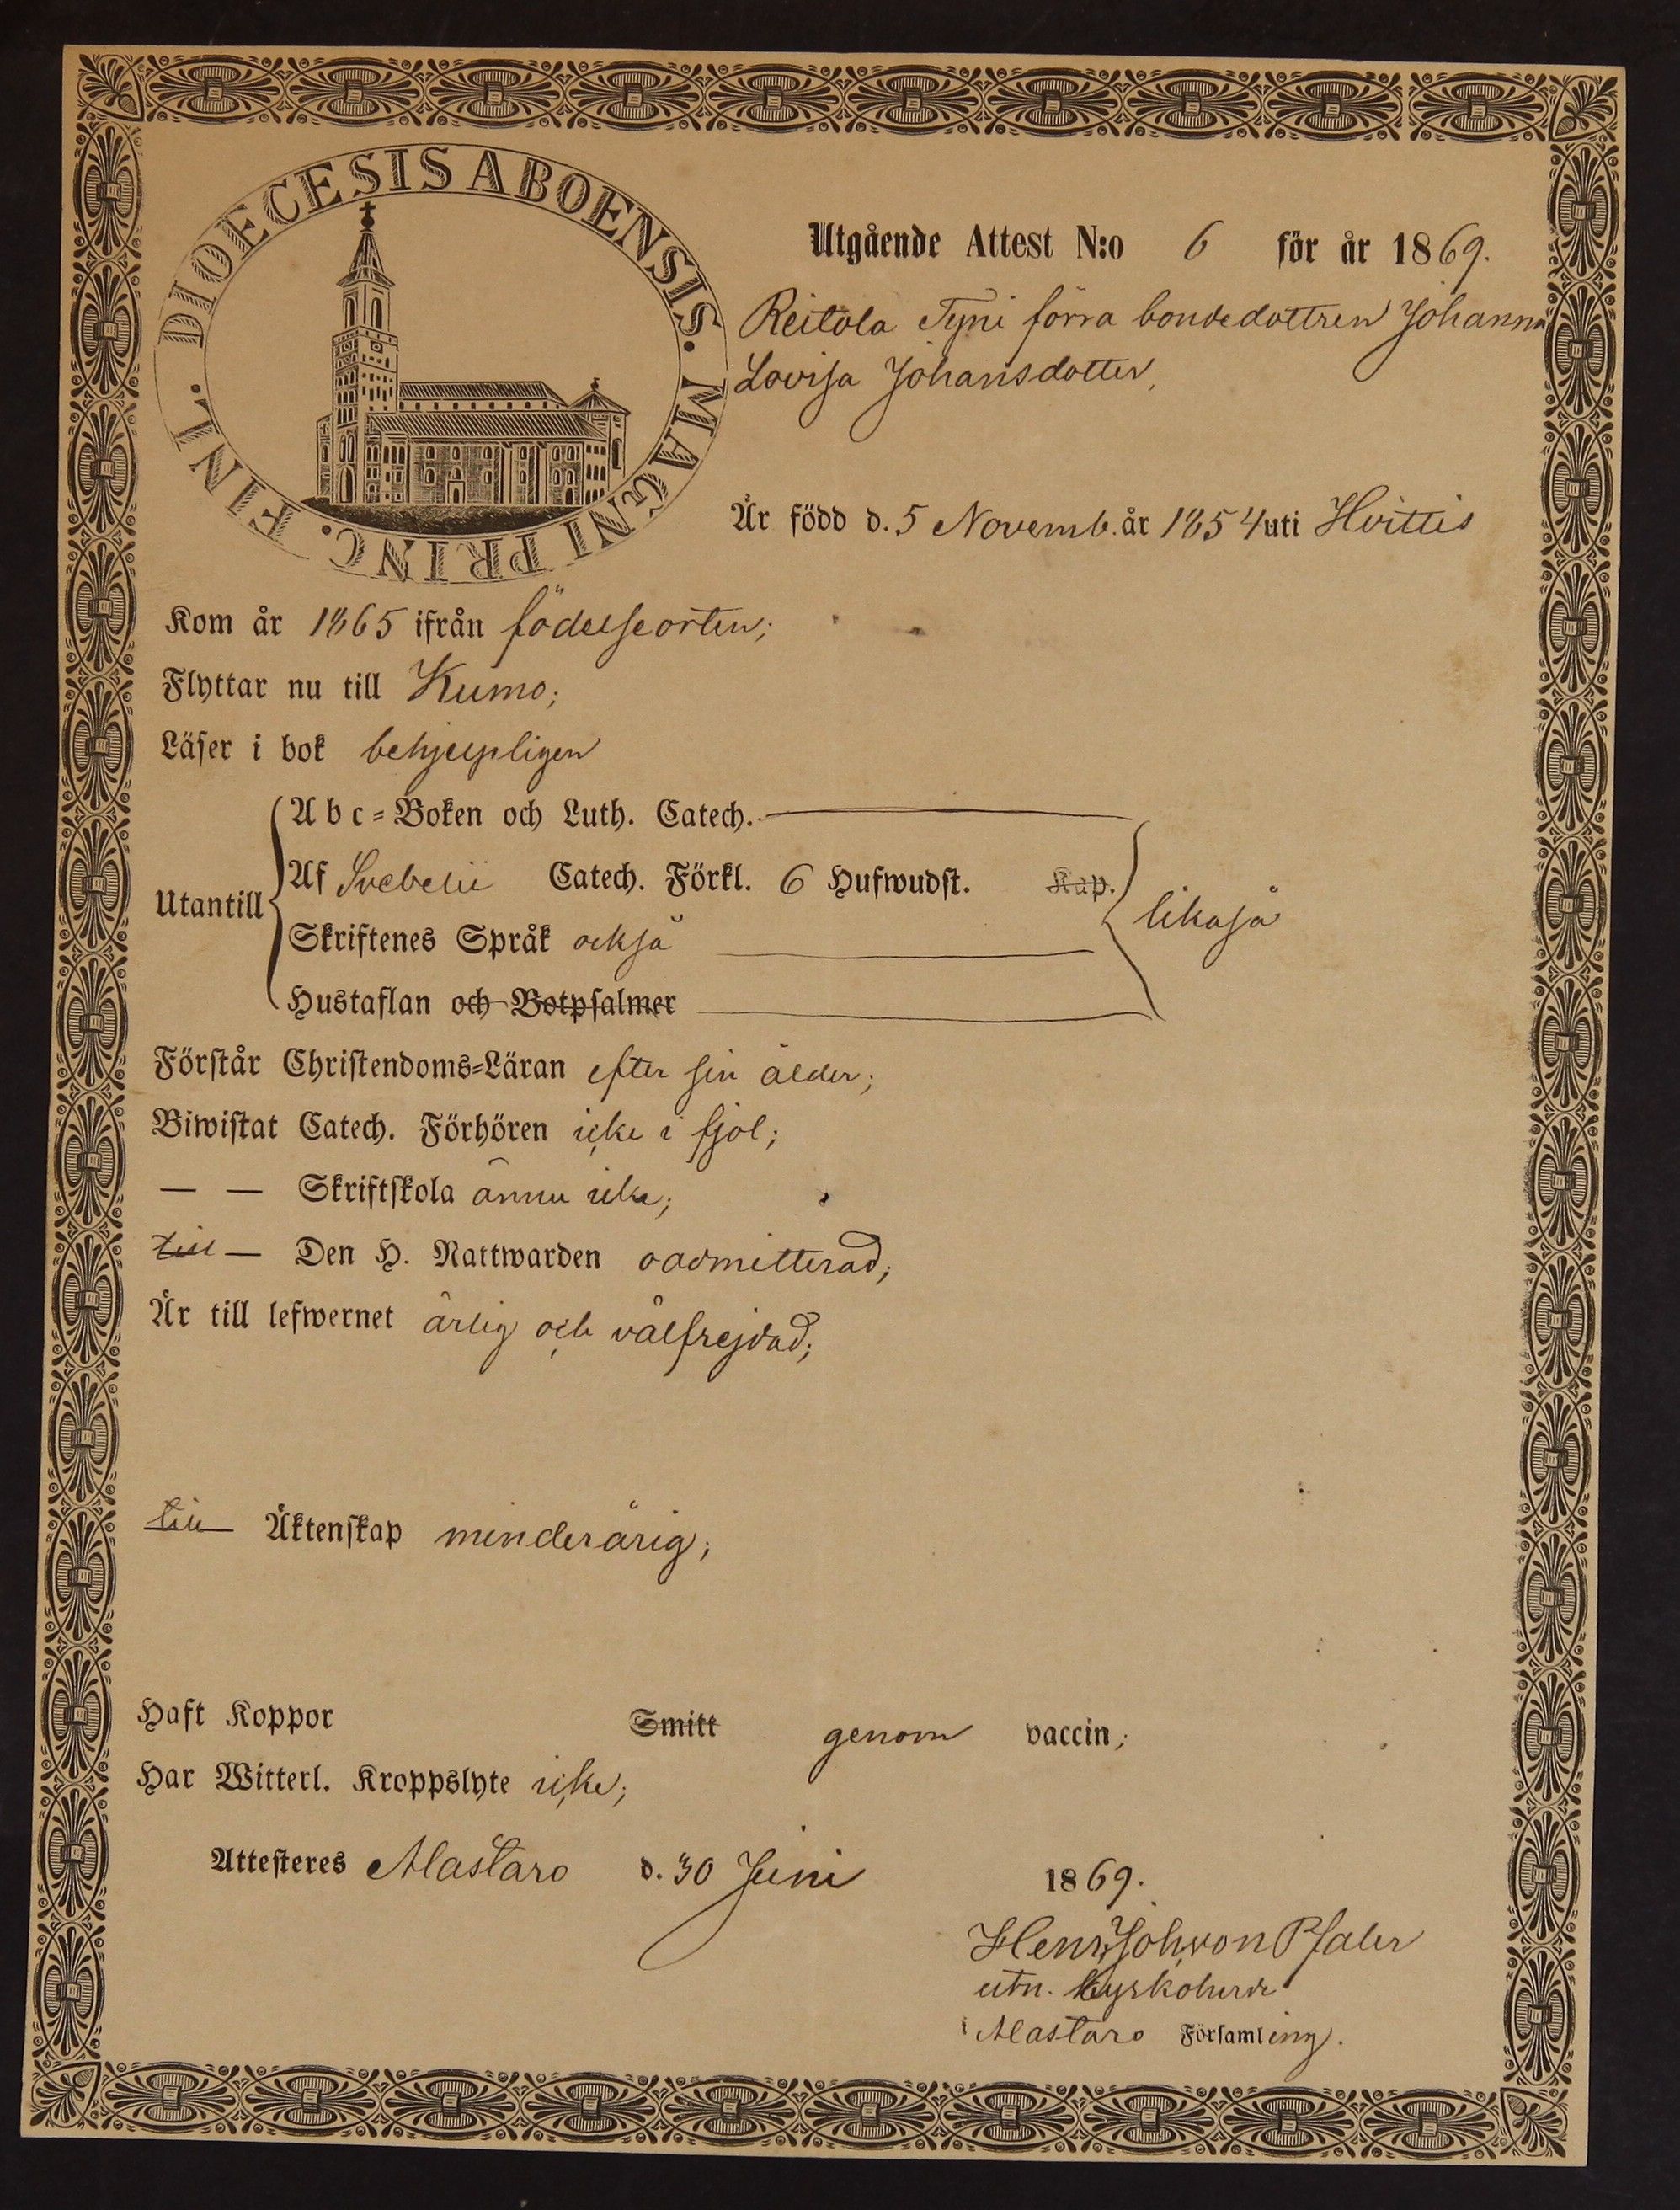 DIOECESIS ABOENSIS. MAGNI PRINC. FINL.
Utgående Attest N:o 6 för år 1869.
Reitola Tyni förra bondedottren Johanna
Lovisa Johansdotter,
Är född d. 5 Novemb. år 1854 uti Hvittis
Kom år 1865 ifrån födelseorten;
Flyttar nu till Kumo;
Läser i bok behjelpligen
Abc-Boken och Luth. Catech.
Af Svebelii Catech. Förkl. 6 Hufwudst. Kap.
Utantill
likaså
Skriftenes Språk också
Hustaflan och Botpsalmer
Förstår Christendoms-Läran efter sin ålder;
Biwistat Catech. Förhören icke i fjol;
— — Skriftskola ännu icke;
till — Den H. Nattwarden oadmitterad;
Är till lefwernet ärlig och välfrejdad;
till Äktenskap minderårig;
Haft Koppor Smitt genom vaccin;
Har Witterl. Kroppslyte icke;
Attesteres Alastaro d. 30 Juni 1869.
Henr. Joh. von Pfaler
utn. Kyrkoherde
i Alastaro Församling.